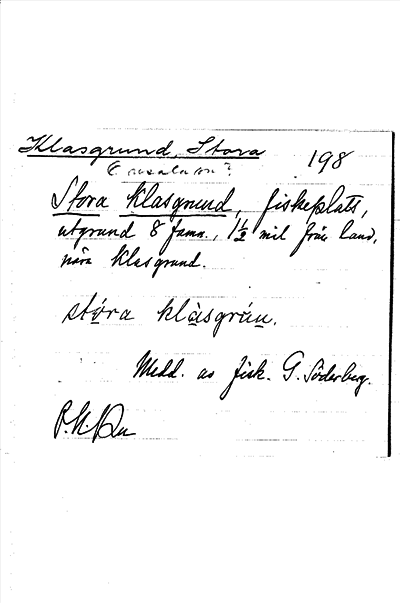 Klasgrund, Stora
198
Stora Klasgrund, fiskeplats,
utgrund 8 famn., 1½ mil från land,
nära Klasgrund.
stóra klàsgrùn.
Medd. av fisk. G. Söderberg.